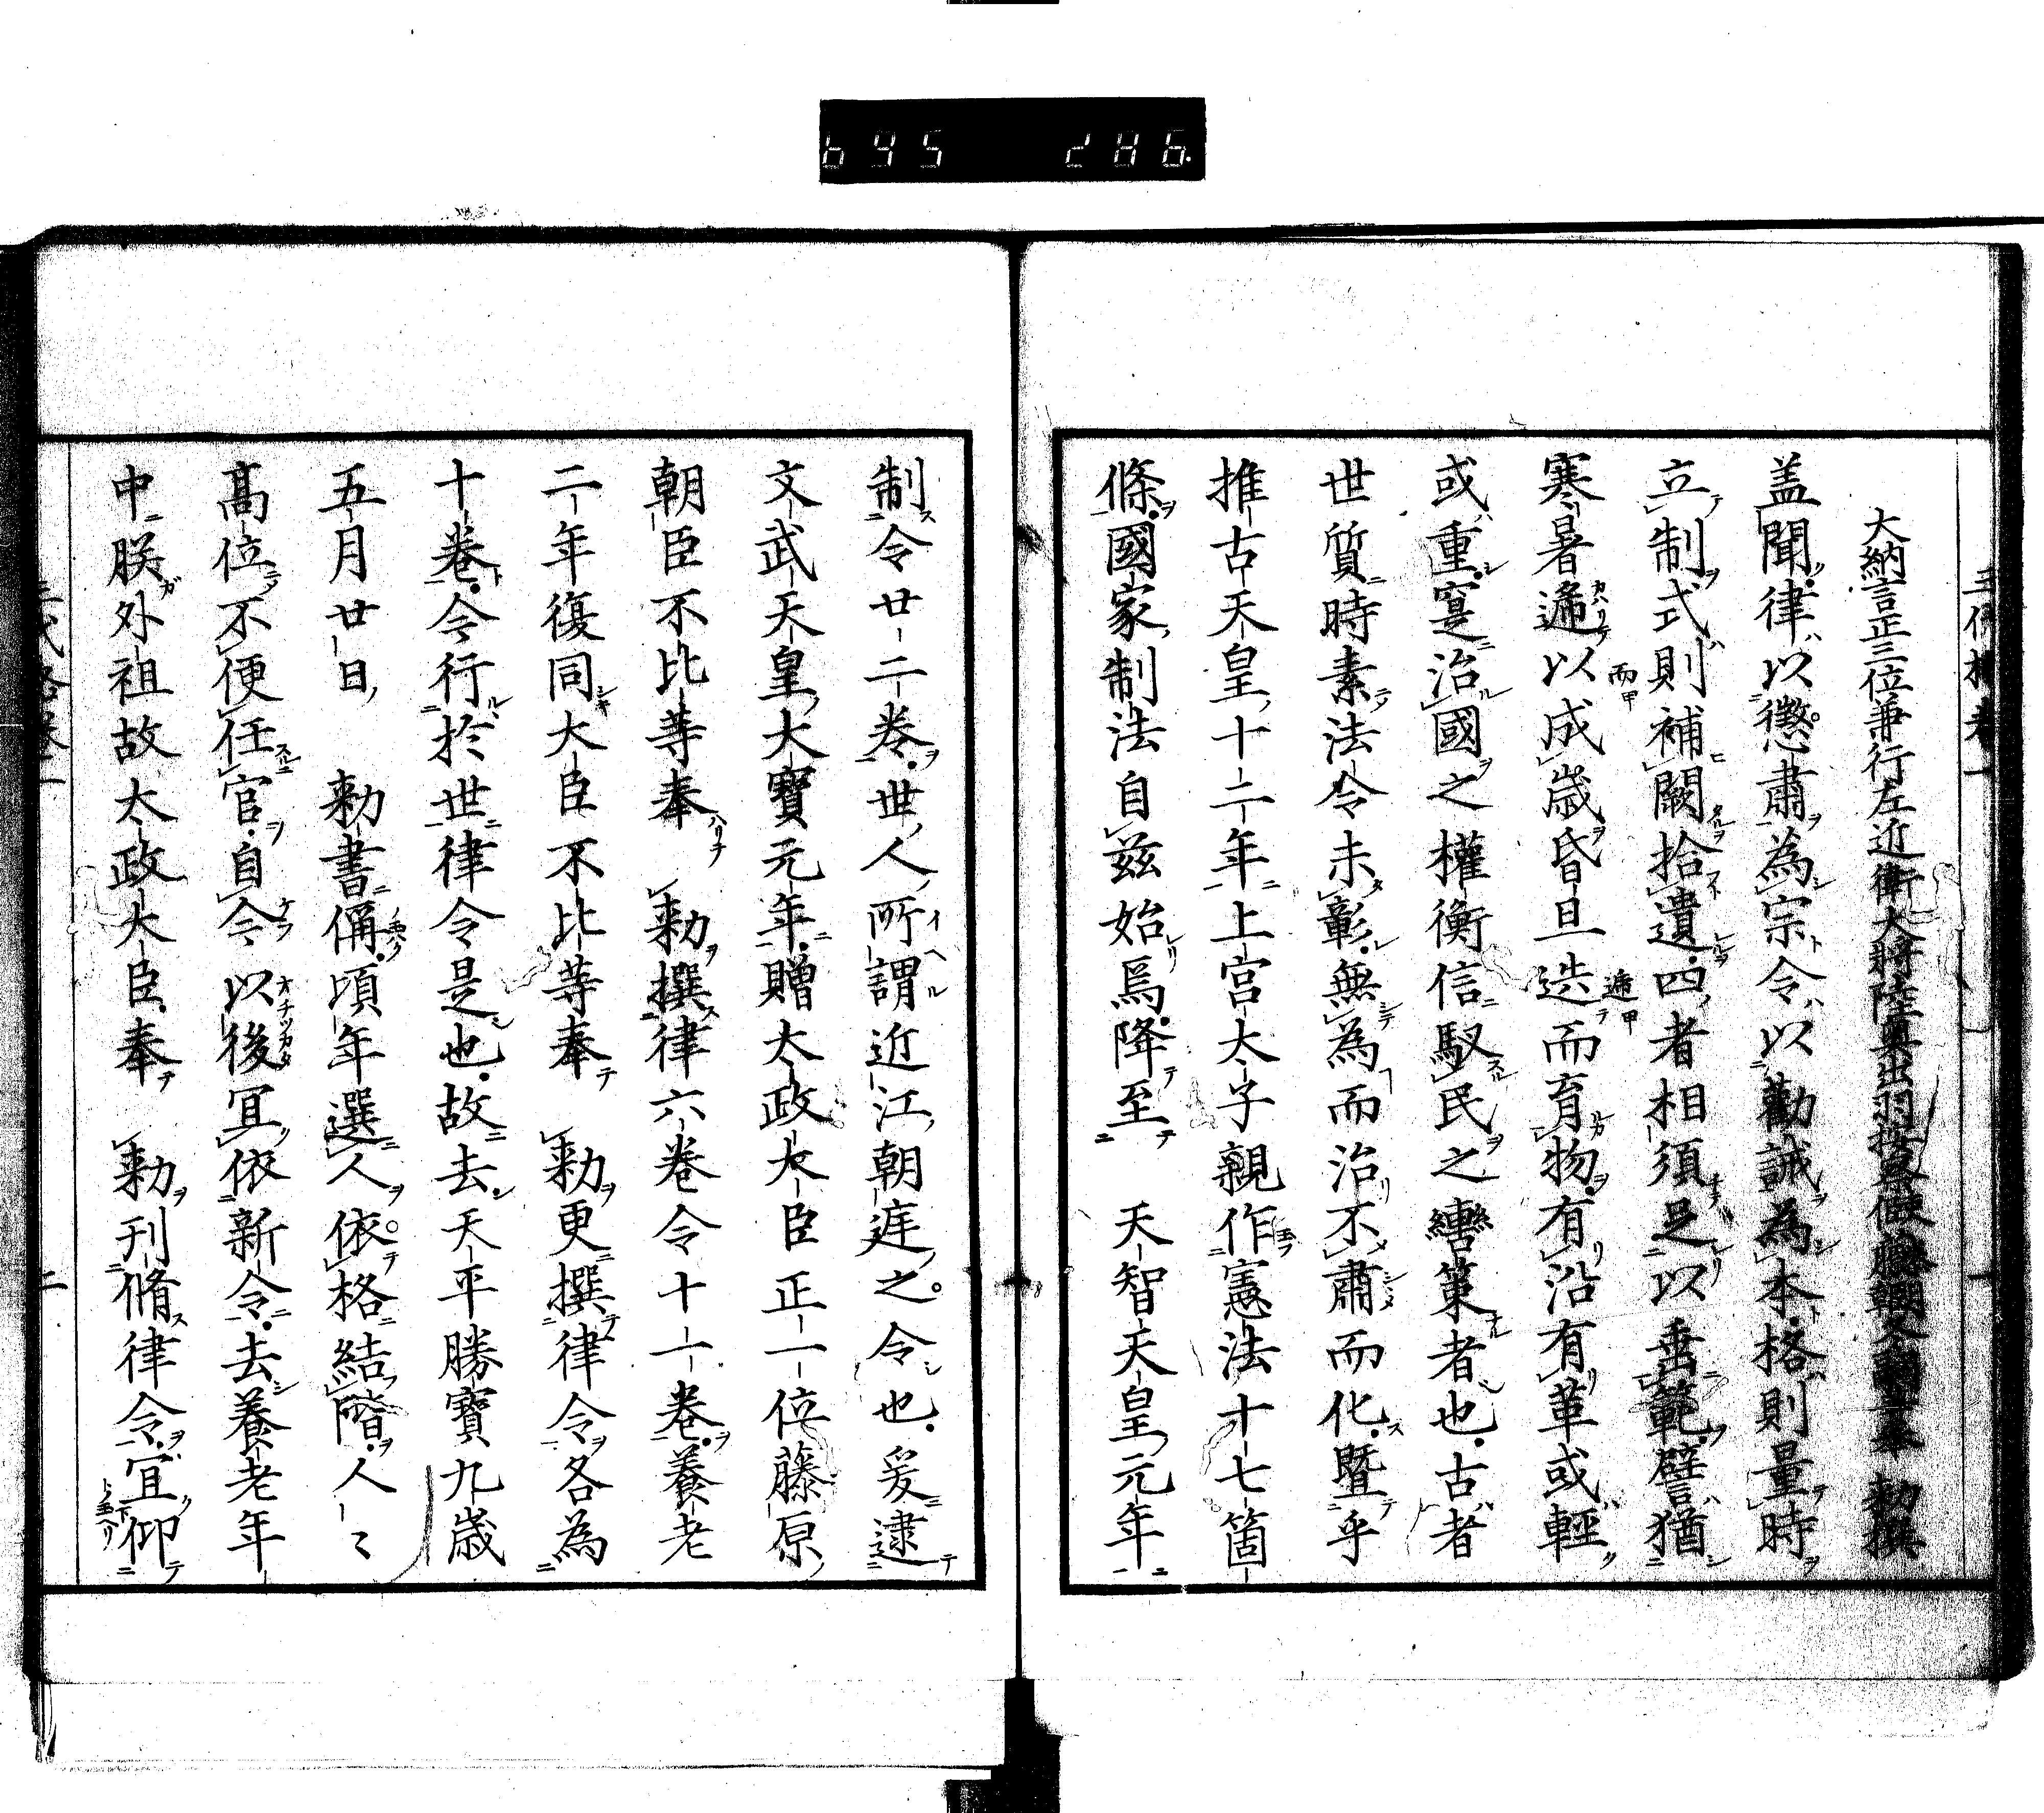 大納言正三位兼行左近衛大將陸奥出羽按察使臣藤原朝臣冬嗣等奉 勅撰
盖聞律以懲肅為宗令以勸誡為本格則量時
立制式則補闕拾遺四者相須足以垂範譬猶
寒暑遞以成歳昏旦迭而育物有沿有革或輕
或重寔治國之權衡信馭民之轡策者也古者
世質時素法令未彰無為而治不肅而化曁乎
推古天皇十二年上宮太子親作憲法十七箇
條國家制法自兹始焉降至 天智天皇元年
制令廿二卷世人所謂近江朝廷之令也爰逮
文武天皇大寶元年贈太政大臣正一位藤原
朝臣不比等奉 勅撰律六卷令十一卷養老
二年復同大臣不比等奉 勅更撰律令各為
十卷今行於世律令是也故去天平勝寶九歳
五月廿日 勅書偁頃年選人依格結階人〻
髙位不便任官自今以後宜依新令去養老年
中朕外祖故太政大臣奉 勅刊脩律令宜仰
二